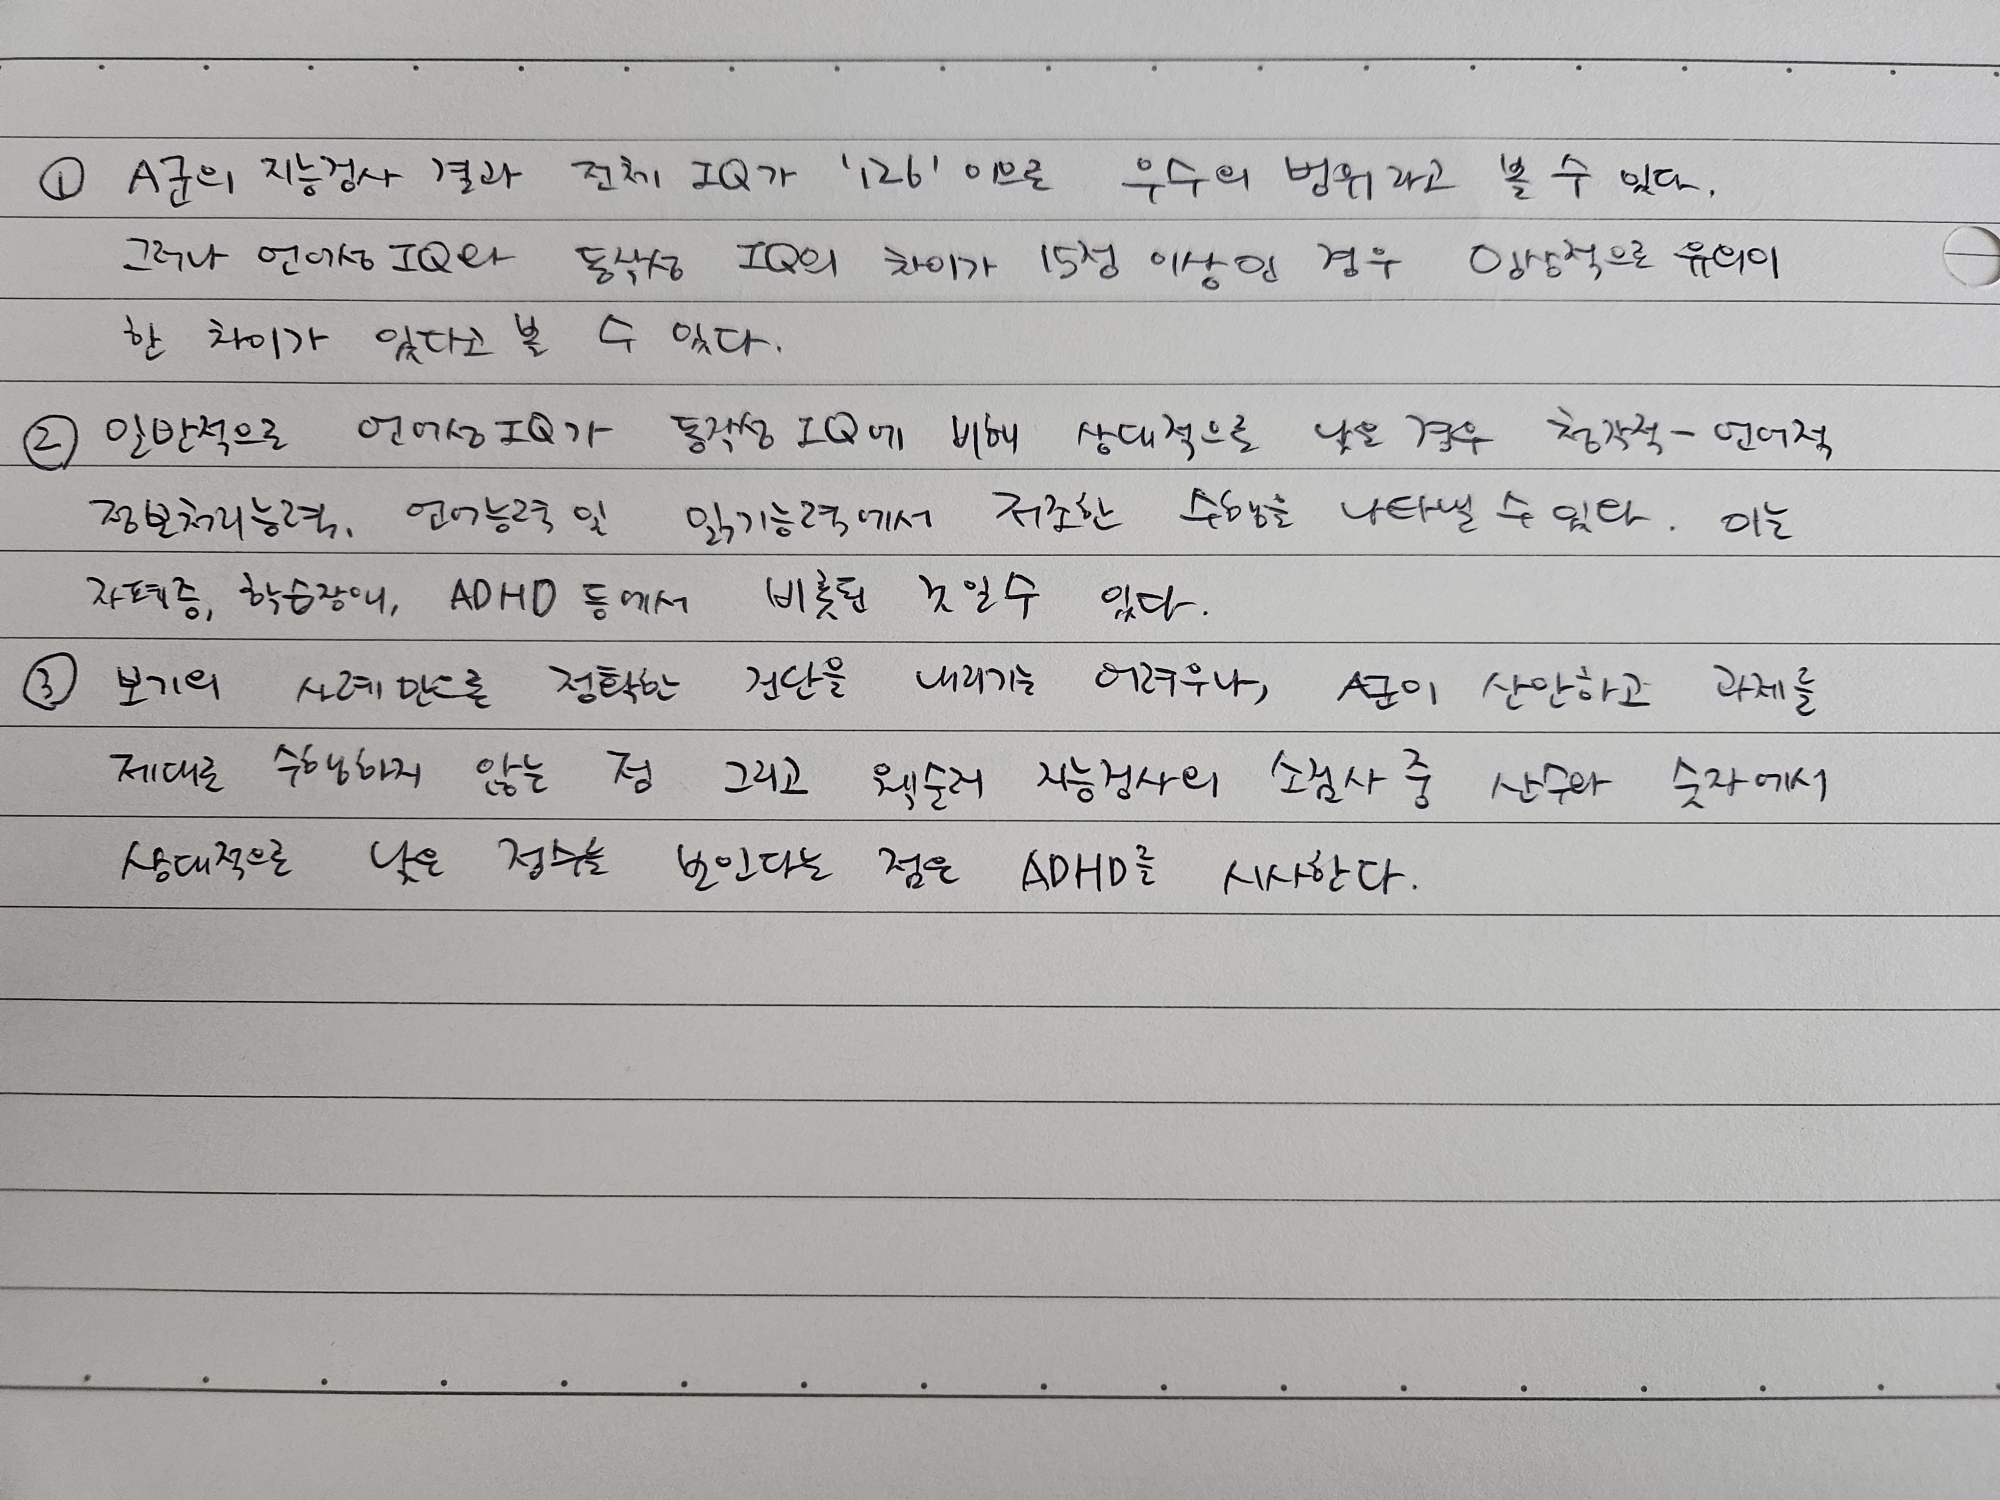 ① A군의 지능검사 결과 전체 IQ가 '126' 이므로 우수의 범위라고 볼 수 있다.
그러나 언어성 IQ와 동작성 IQ의 차이가 15점 이상인 경우 임상적으로 유의미
한 차이가 있다고 볼 수 있다.
② 일반적으로 언어성 IQ가 동작성 IQ에 비해 상대적으로 낮은 경우 청각적-언어적
정보처리능력, 언어능력 및 읽기능력에서 저조한 수행을 나타낼 수 있다. 이는
자폐증, 학습장애, ADHD 등에서 비롯된 것일 수 있다.
③ 보기의 사례만으로 정확한 진단을 내리기는 어려우나, A군이 산만하고 과제를
제대로 수행하지 않는 점 그리고 웩슬러 지능검사의 소검사 중 산수와 숫자에서
상대적으로 낮은 점수를 보인다는 점은 ADHD를 시사한다.